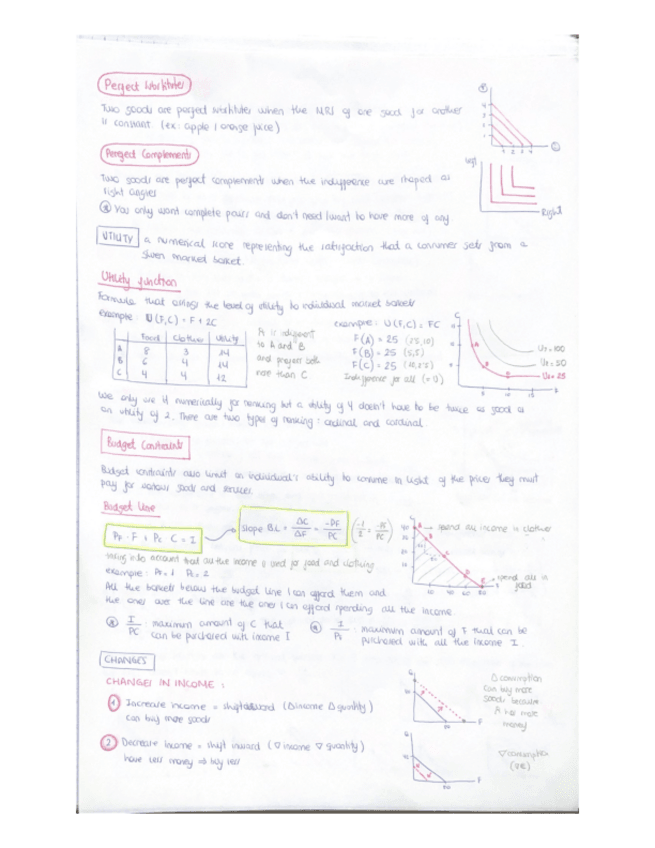 Perfect Substitutes
Two goods are perfect substitutes when the MRS of one good for another
is constant (ex: apple / orange juice)
Perfect Complements
Two goods are perfect complements when the indifference are shaped as
right angles
You only want complete pairs and don't need / want to have more of any
Left
Right
UTILITY a numerical score representing the satisfaction that a consumer gets from a
given market basket.
Utility function
Formula that assign the level of utility to individual market baskets
example: U(F,C) = F + 2C
Food Clothes Utility
A 8 3 14
B 6 4 14
C 4 4 12
is indifferent
to A and B
and prefers both
more than C
example: U(F,C) = FC
F(A) = 25 (2.5,10)
F(B) = 25 (5,5)
F(C) = 25 (10,2.5)
Indifference for all (=U)
U3 = 100
U2 = 50
U1 = 25
We only use it numerically for ranking but a utility of 4 doesn't have to be twice as good as
an utility of 2. There are two types of ranking: ordinal and cardinal.
Budget Constraints
Budget constraints also limit an individual's ability to consume in light of the prices they must
pay for various goods and services.
Budget Line
PF · F + PC C = I
slope BL = ΔC/ΔF = -PF/PC (-1/2 = -PF/PC)
taking into account that all the income is used for food and clothing
example: PF = 1 PC = 2
All the baskets below the budget line I can afford them and
the ones over the line are the ones I can afford spending all the income.
spend all income in clothes
spend all in
food
I/PC : maximum amount of C that
can be purchased with income I
I/PF : maximum amount of F that can be
purchased with all the income I.
CHANGES
CHANGES IN INCOME:
1 Increase income = shift outward (Δ income Δ quantity)
can buy more goods
Δ consumption
can buy more
goods because
A has more
money
2 Decrease income = shift inward (∇ income ∇ quantity)
have less money ⇒ buy less
∇ consumption